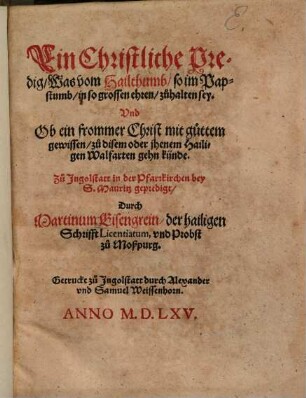 Ein Christliche Pre-
dig/ Was vom Hailthumb/ so im Pap-
stumb/ in so grossen ehren/ zůhalten sey.
Vnd
Ob ein frommer Christ mit gůttem
gewissen/ zů disem oder jhenem Haili-
gen Walfarten gehn künde.
Zů Ingolstatt in der Pfarrkirchen bey
S. Mauritz geprediget/
Durch
Martinum Eisengrein/ der hailigen
Schrifft Licentiatum, vnd Probst
zů Moßpurg.
Getruckt zů Ingolstatt durch Alexander
vnd Samuel Weissenhorn.
ANNO M. D. LXV.